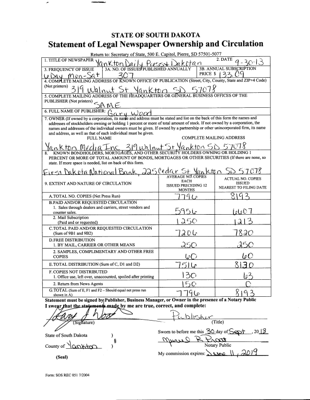 STATE OF SOUTH DAKOTA
Statement of Legal Newspaper Ownership and Circulation
Return to: Secretary of State, 500 E. Capitol, Pierre, SD 57501-5077
1. TITLE OF NEWSPAPER Yankton Daily Press & Dakotan 2. DATE 9-30-13
3. FREQUENCY OF ISSUE 6 Day Mon-Sat 3A. NO. OF ISSUES PUBLISHED ANNUALLY 307 3B. ANNUAL SUBSCRIPTION PRICE $ 133.09
4. COMPLETE MAILING ADDRESS OF KNOWN OFFICE OF PUBLICATION (Street, City, County, State and ZIP+4 Code)
(Not printers) 319 Walnut St Yankton SD 57078
5. COMPLETE MAILING ADDRESS OF THE HEADQUARTERS OR GENERAL BUSINESS OFFICES OF THE
PUBLISHER (Not printers) SAME
6. FULL NAME OF PUBLISHER: Gary Wood
7. OWNER (If owned by a corporation, its name and address must be stated and list on the back of this form the names and
addresses of stockholders owning or holding 1 percent or more of total amount of stock. If not owned by a corporation, the
names and addresses of the individual owners must be given. If owned by a partnership or other unincorporated firm, its name
and address, as well as that of each individual must be given.
FULL NAME COMPLETE MAILING ADDRESS
Yankton Media Inc. 319 Walnut St Yankton SD 57078
8. KNOWN BONDHOLDERS, MORTGAGES, AND OTHER SECURITY HOLDERS OWNING OR HOLDING 1
PERCENT OR MORE OF TOTAL AMOUNT OF BONDS, MORTGAGES OR OTHER SECURITIES (If there are none, so
state. If more space is needed, list on back of this form.
First Dakota National Bank, 225 Cedar St Yankton SD 57078
9. EXTENT AND NATURE OF CIRCULATION AVERAGE NO. COPIES EACH ISSUED PRECEDING 12 MONTHS ACTUAL NO. COPIES ISSUED NEAREST TO FILING DATE
A. TOTAL NO. COPIES (Net Press Run) 7796 8193
B. PAID AND/OR REQUESTED CIRCULATION
1. Sales through dealers and carriers, street vendors and
counter sales 5956 6607
2. Mail Subscription
(Paid and or requested) 1250 1213
C. TOTAL PAID AND/OR REQUESTED CIRCULATION
(Sum of 9B1 and 9B2) 7206 7820
D. FREE DISTRIBUTION
1. BY MAIL, CARRIER OR OTHER MEANS 250 250
2. SAMPLES, COMPLIMENTARY AND OTHER FREE
COPIES 60 60
E. TOTAL DISTRIBUTION (Sum of C, D1 and D2) 7516 8130
F. COPIES NOT DISTRIBUTED
1. Office use, left over, unaccounted, spoiled after printing 130 63
2. Return from News Agents 150 0
G. TOTAL (Sum of E, F1 and F2 - Should equal net press run
shown in A) 7796 8193
Statement must be signed by Publisher, Business Manager, or Owner in the presence of a Notary Public
I swear that the statements made by me are true, correct, and complete:
Gary L Wood Publisher
(Signature) (Title)
State of South Dakota )
Sworn to before me this 30 day of Sept, 2013
County of Yankton ) Notary Public
(Seal) My commission expires: June 11, 2019
Form: SOS REC 051 7/2004